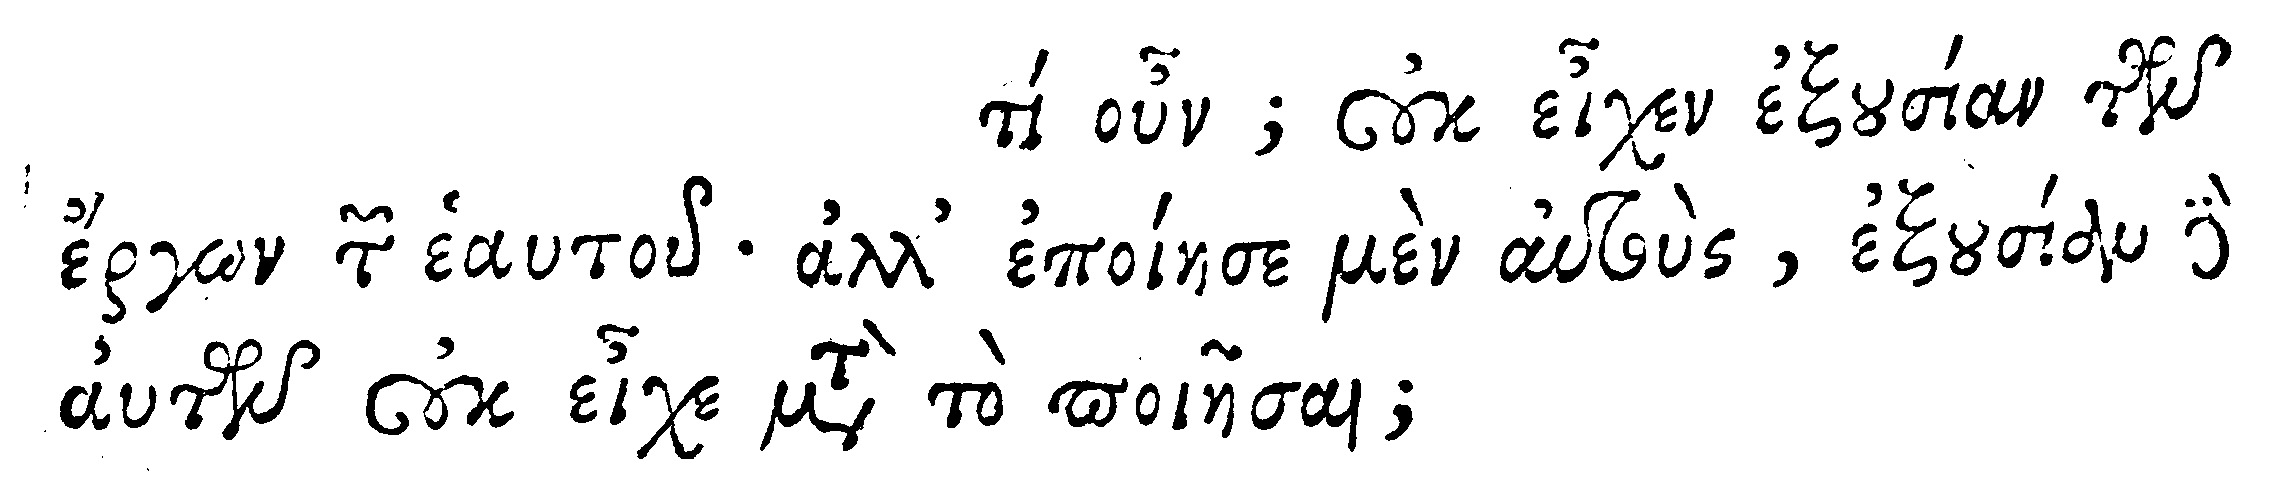 τί οὖν ; οὐκ εἶχεν ἐξουσίαν τῶν
ἔργων τῶν ἑαυτοῦ · ἀλλ’ ἐποίησε μὲν αὐτοὺς , ἐξουσίαν δὲ
αὐτῶν οὐκ εἶχε μετὰ τὸ ποιῆσαι ;